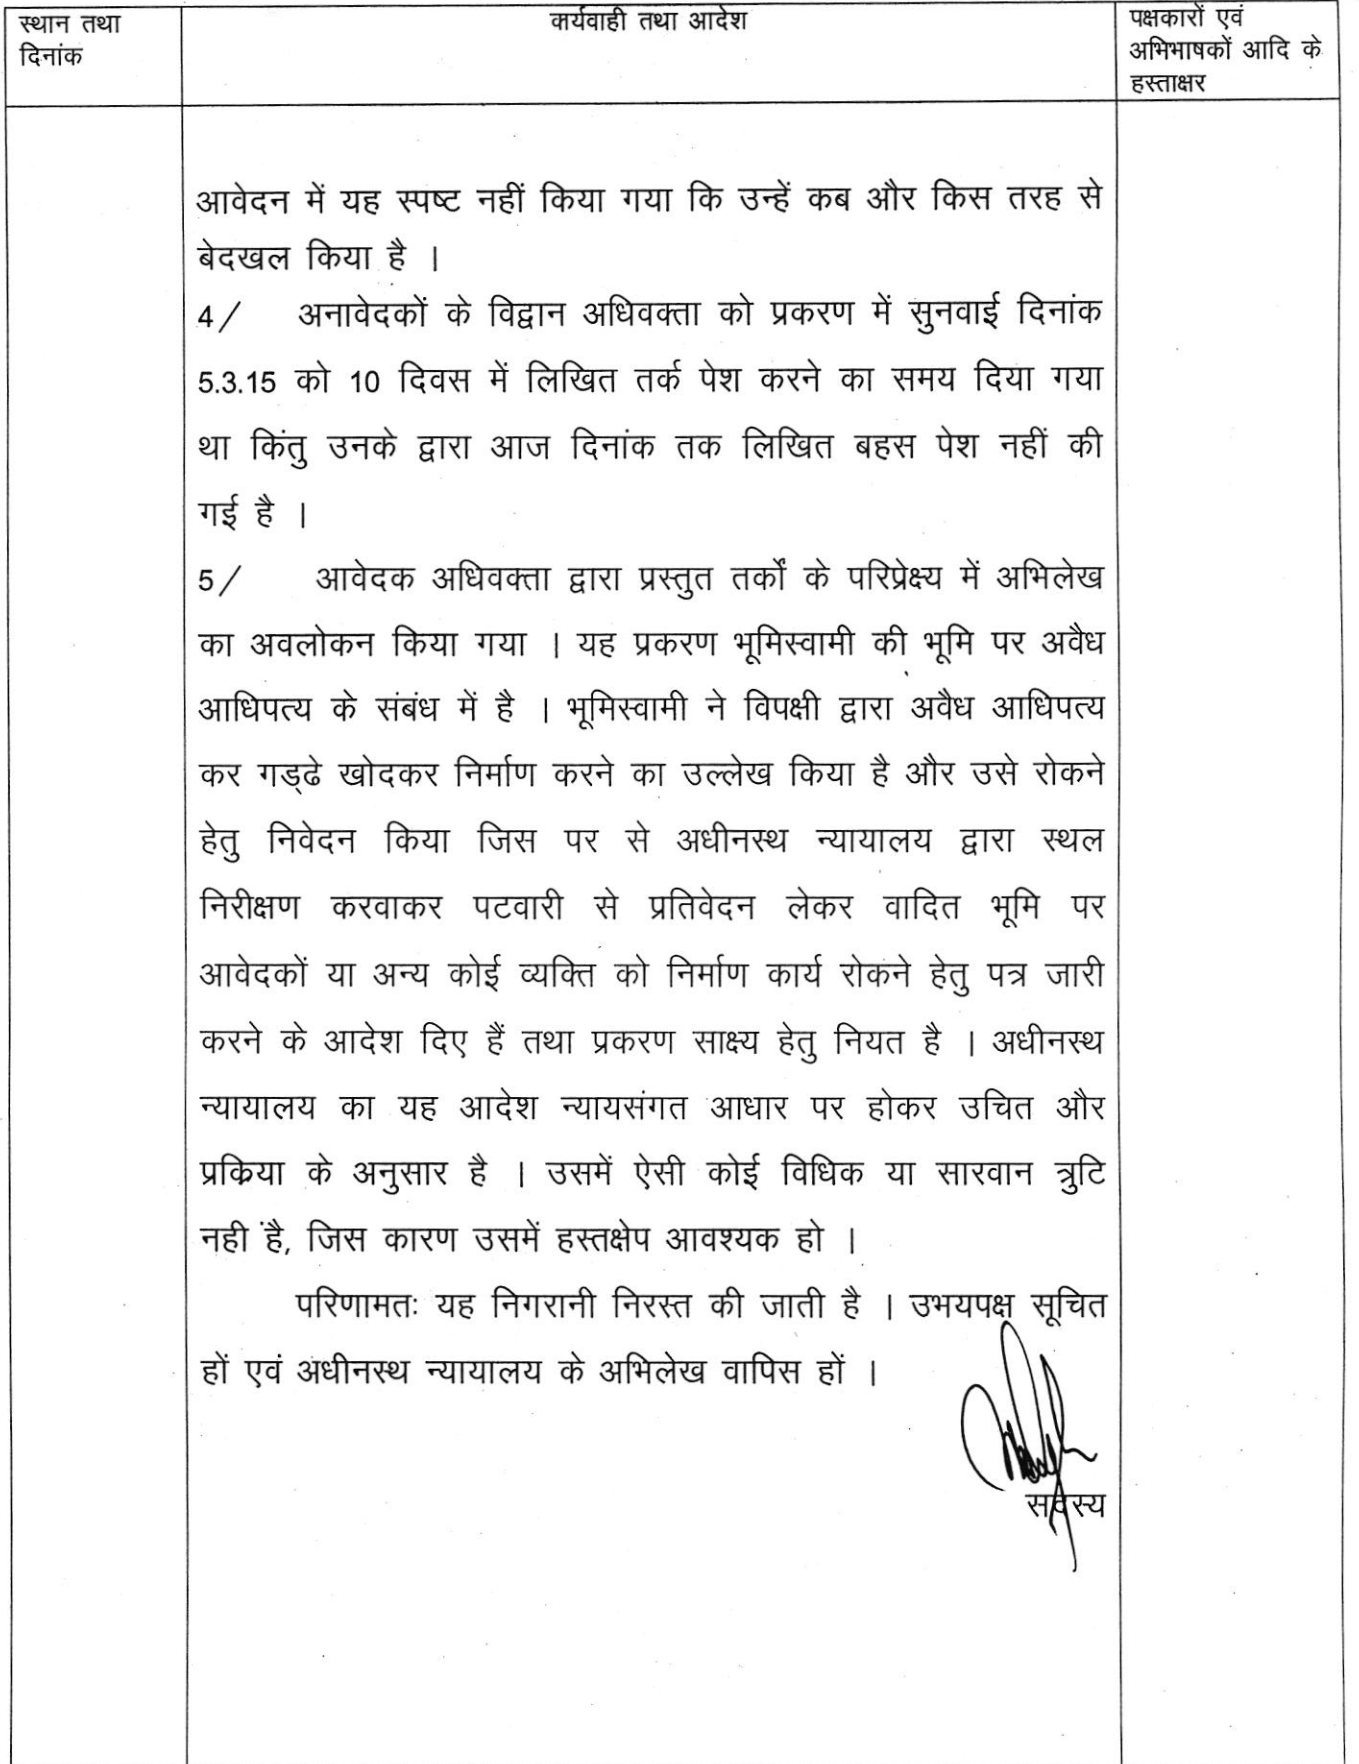 स्थान तथा
दिनांक
कार्यवाही तथा आदेश
पक्षकारों एवं
अभिभाषकों आदि के
हस्ताक्षर
आवेदन में यह स्पष्ट नहीं किया गया कि उन्हें कब और किस तरह से
बेदखल किया है ।
4/ अनावेदकों के विद्वान अधिवक्ता को प्रकरण में सुनवाई दिनांक
5.3.15 को 10 दिवस में लिखित तर्क पेश करने का समय दिया गया
था किंतु उनके द्वारा आज दिनांक तक लिखित बहस पेश नहीं की
गई है ।
5/ आवेदक अधिवक्ता द्वारा प्रस्तुत तर्कों के परिप्रेक्ष्य में अभिलेख
का अवलोकन किया गया । यह प्रकरण भूमिस्वामी की भूमि पर अवैध
आधिपत्य के संबंध में है । भूमिस्वामी ने विपक्षी द्वारा अवैध आधिपत्य
कर गड्ढे खोदकर निर्माण करने का उल्लेख किया है और उसे रोकने
हेतु निवेदन किया जिस पर से अधीनस्थ न्यायालय द्वारा स्थल
निरीक्षण करवाकर पटवारी से प्रतिवेदन लेकर वादित भूमि पर
आवेदकों या अन्य कोई व्यक्ति को निर्माण कार्य रोकने हेतु पत्र जारी
करने के आदेश दिए हैं तथा प्रकरण साक्ष्य हेतु नियत है । अधीनस्थ
न्यायालय का यह आदेश न्यायसंगत आधार पर होकर उचित और
प्रकिया के अनुसार है । उसमें ऐसी कोई विधिक या सारवान त्रुटि
नही ंहै, जिस कारण उसमें हस्तक्षेप आवश्यक हो ।
परिणामतः यह निगरानी निरस्त की जाती है । उभयपक्ष सूचित
हों एवं अधीनस्थ न्यायालय के अभिलेख वापिस हों ।
सदस्य